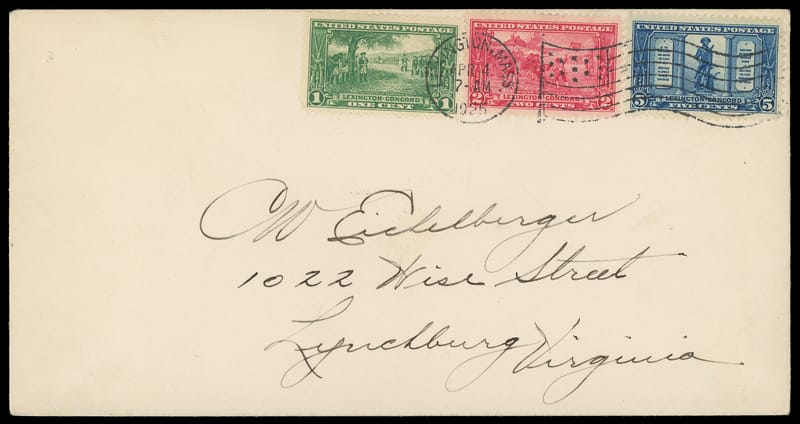 UNITED STATES POSTAGE UNITED STATES POSTAGE UNITED STATES POSTAGE
LEXINGTON-CONCORD LEXINGTON-CONCORD LEXINGTON-CONCORD
1 ONE CENT 1 2 TWO CENTS 2 5 FIVE CENTS 5
INGTON, MASS
APR 4
7-AM
1925
CW Eichelberger
1022 Wise Street
Lynchburg Virginia